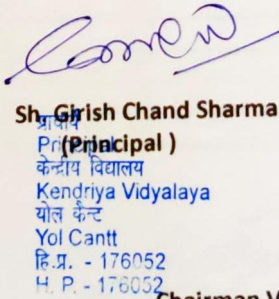 Sh. Girish Chand Sharma
प्राचार्य
Principal
(Principal )
केन्द्रीय विद्यालय
Kendriya Vidyalaya
योल कैन्ट
Yol Cantt
हि.प्र. - 176052
H. P. - 176052
Chairman V